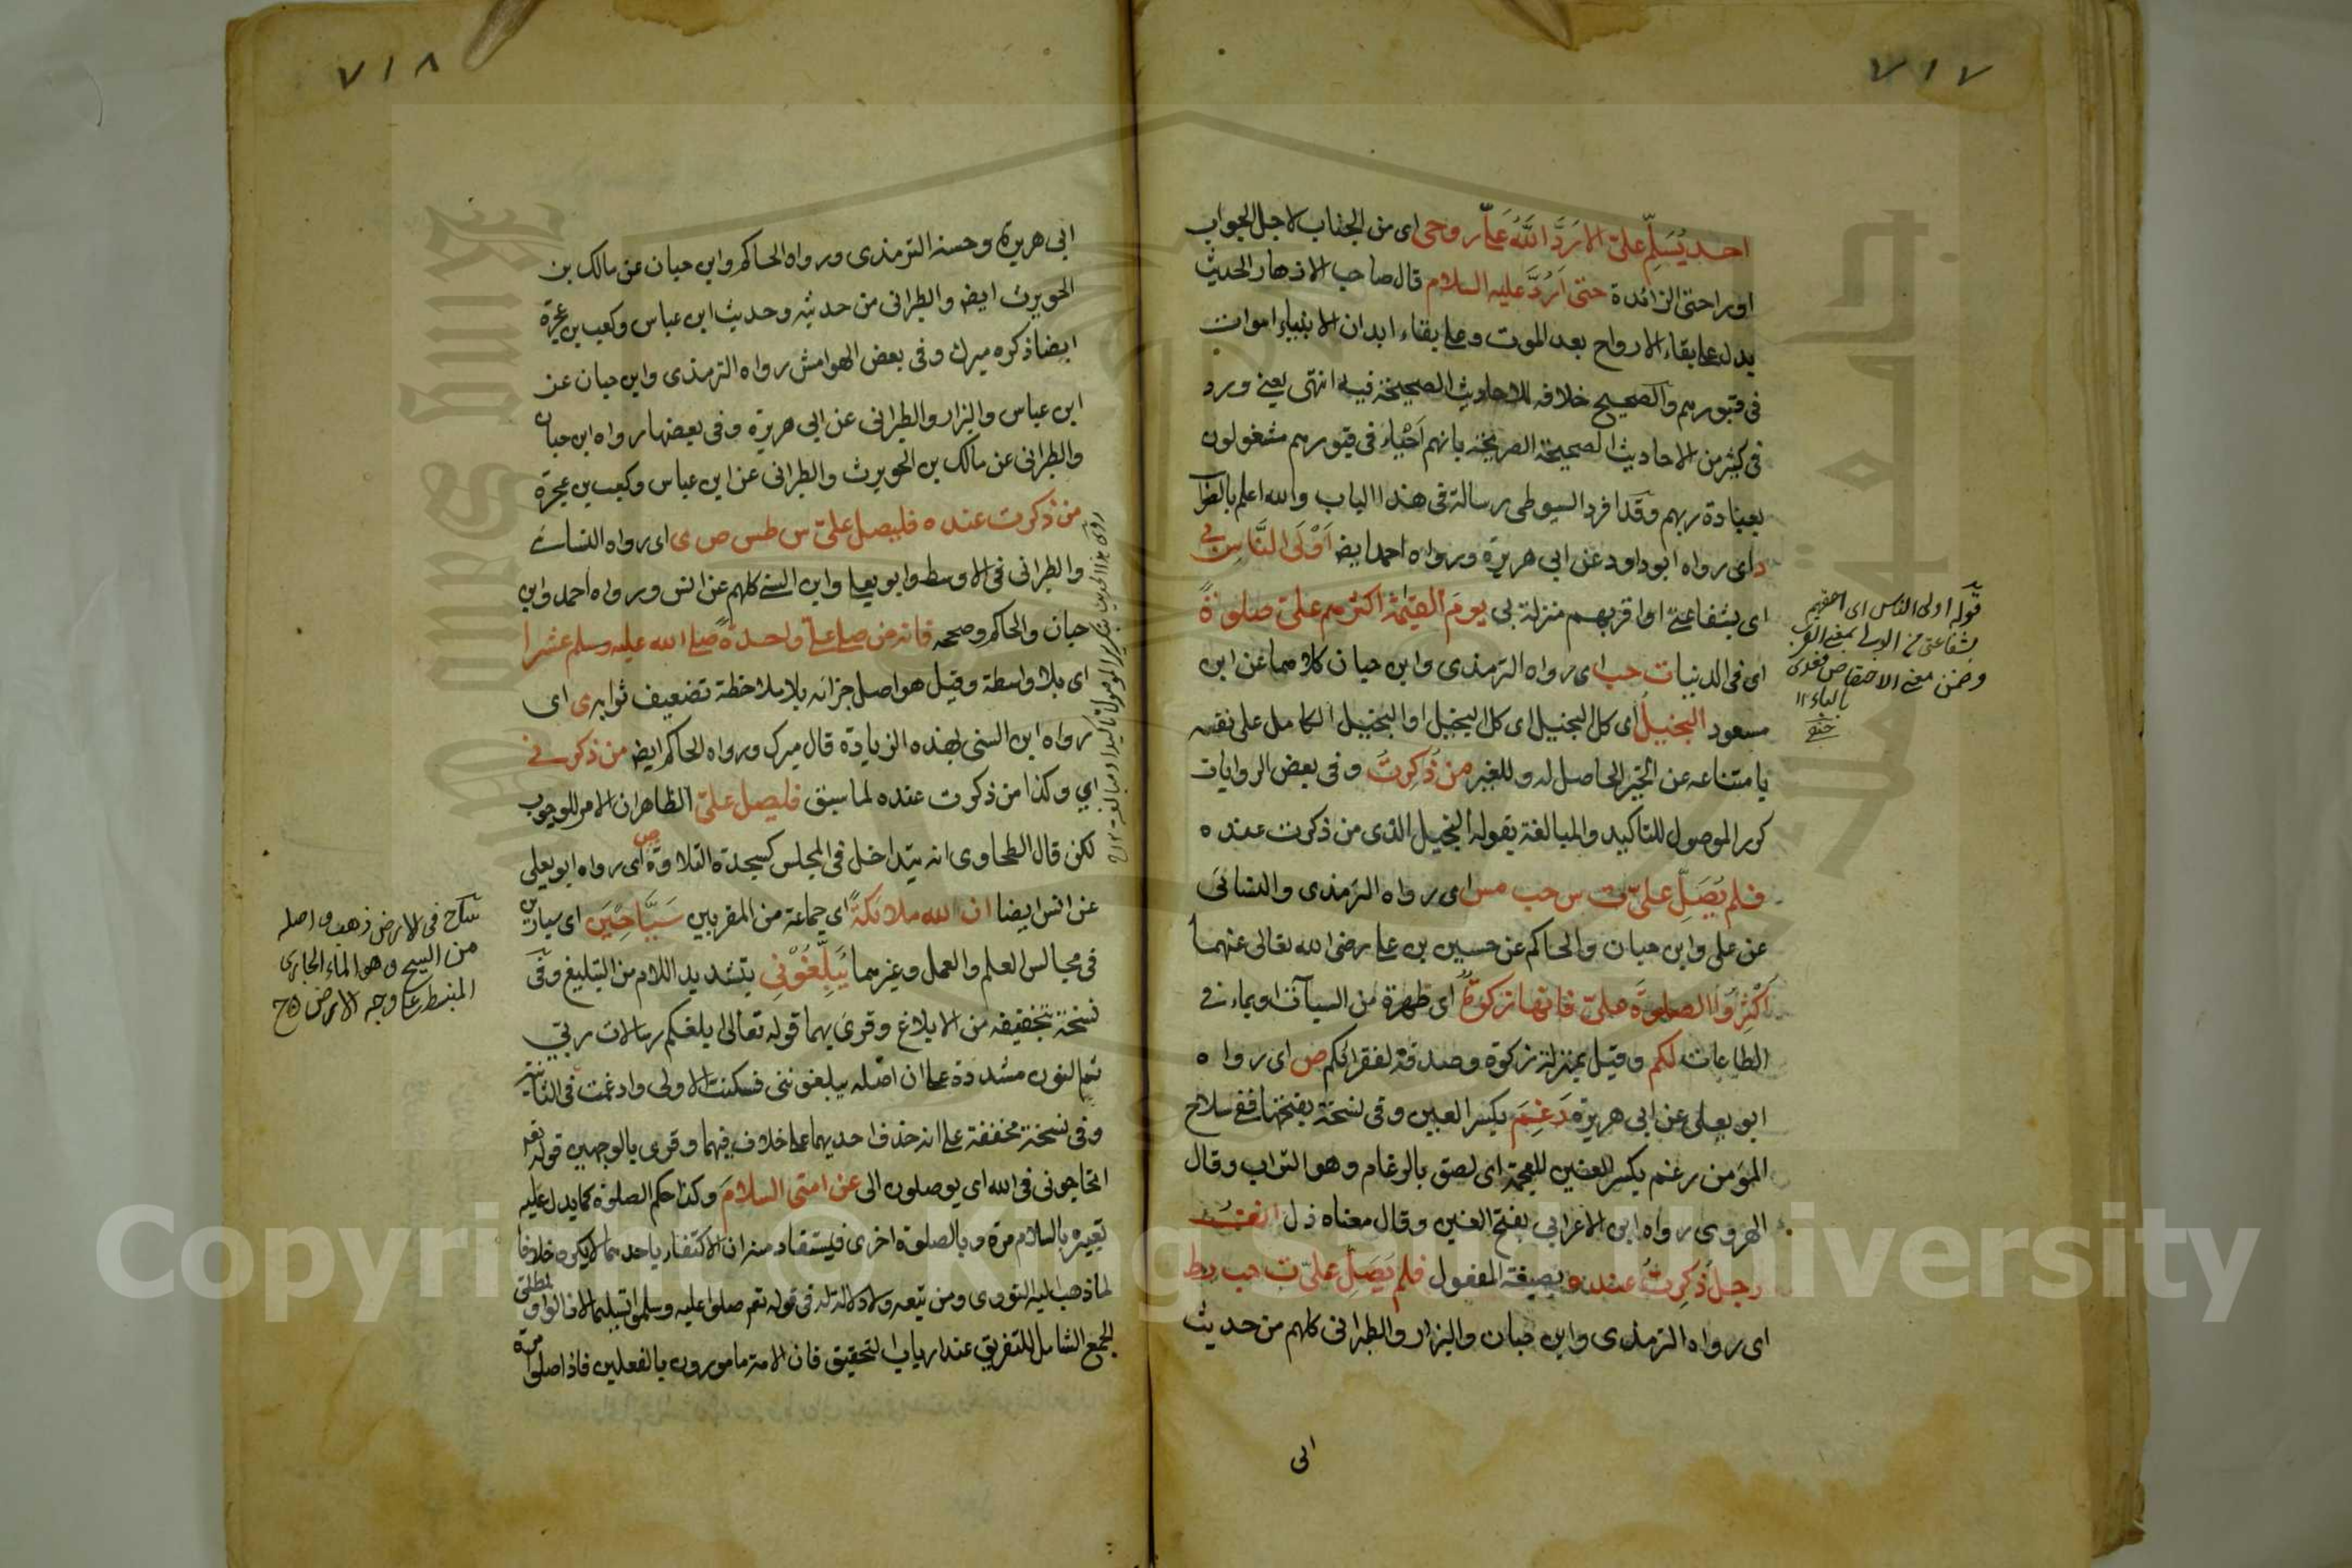 ٧١٧
احد يُسَلِّم علىّ الا رَدَّ اللّٰهُ علىّ روحى اى من الجناب لاجل الجواب
اوراحتى الزائدة حتى اَرُدَّ عليه السلام قال صاحب الازهار الحديث
يدل على بقاء الارواح بعد الموت وعلى بقاء ابدان الانبياء اموات
فى قبورهم والصحيح خلافه للاحاديث الصحيحة فيه انتهى يعنى وورد
فى كثير من الاحاديث الصحيحة الصريحة بانهم اَحْيَاء فى قبورهم مشغولون
بعبادة ربهم وقد افرد السيوطى رسالة فى هذا الباب والله اعلم بالصواب
د اى رواه ابو داود عن ابى هريرة ورواه احمد ايضا اَوْلَى النَّاسِ بى
اى بشفاعتى او اقربهم منزلة بى يومَ القيٰمة اكثرهم علىّ صلوٰةً
اى فى الدنيا ت حب اى رواه الترمذى وابن حبان كلاهما عن ابن
مسعود البخيلُ اى كل البخيل اى كل البخيل او البخيل الكامل على نفسه
بامتناعه عن الخير الحاصل له وللغير من ذُكِرتُ وفى بعض الروايات
كرر الموصول للتاكيد والمبالغة بقوله البخيل الذى من ذكرت عنده
فلم يُصَلِّ علىّ ت س حب مس اى رواه الترمذى والنسائى
عن على وابن حبان والحاكم عن حسين بن على رضى الله تعالى عنهما
اَكْثِرُوا الصلوٰةَ علىّ فانها زكوٰةٌ اى طهرة من السيآت او نماء فى
الطاعات لكم وقيل بمنزلة زكوة وصدقة لفقرائكم ص اى رواه
ابو يعلى عن ابى هريرة رَغِمَ بكسر الغين وفى نسخة بفتحها ففى سلاح
المؤمن رغم بكسر الغين المعجمة اى لصق بالرغام وهو التراب وقال
الهروى رواه ابن الاعرابى بفتح الغين وقال معناه ذل انفُ
رجلٍ ذُكِرتُ عنده بصيغة المفعول فلم يُصَلِّ علىّ ت حب ر ط
اى رواه الترمذى وابن حبان والبزار والطبرانى كلهم من حديث
ابى
قوله اولى الناس اى احقهم
بشفاعتى من الولى بمعنى القرب
وضمن معنى الاختصاص فعدى
بالباء ١٢
حنفى
٧١٨
ابى هريرة وحسنه الترمذى ورواه الحاكم وابن حبان عن مالك بن
الحويرث ايضا والطبرانى من حديثه وحديث ابن عباس وكعب بن عجرة
ايضا ذكره ميرك وفى بعض الهوامش رواه الترمذى وابن حبان عن
ابن عباس والبزار والطبرانى عن ابى هريرة وفى بعضها رواه ابن حبان
والطبرانى عن مالك بن الحويرث والطبرانى عن ابن عباس وكعب بن عجرة
من ذكرت عنده فليصل علىّ س طس ص ى اى رواه النسائى
والطبرانى فى الاوسط وابو يعلى وابن السنى كلهم عن انس ورواه احمد وابن
حبان والحاكم وصححه فانه من صلى علىّ واحدةً صلى الله عليه وسلم عشرا
اى بلا واسطة وقيل هو اصل جزائه بلا ملاحظة تضعيف ثوابه ى اى
رواه ابن السنى بهذه الزيادة قال ميرك ورواه الحاكم ايضا من ذكرنى
اى وكذا من ذكرت عنده لما سبق فليصل علىّ الظاهر ان الامر للوجوب
لكن قال الطحاوى انه يتداخل فى المجلس كسجدة التلاوة ص اى رواه ابو يعلى
عن انس ايضا ان الله ملائكةً اى جماعة من المقربين سَيَّاحِيْنَ اى سيارين
فى مجالس العلم والعمل وغيرهما يُبَلِّغُوْنِى بتشديد اللام من التبليغ وفى
نسخة بتخفيفه من الابلاغ وقرئ بهما قوله تعالى ابلغكم رسالات ربى
ثم النون مشددة على ان اصله يبلغوننى فسكنت الاولى وادغمت فى الثانية
وفى نسخة مخففة على انه حذف احديهما على خلاف فيهما وقرئ بالوجهين قوله تعالى
اتحاجونى فى الله اى يوصلون الى عن امتى السلامَ وكذا حكم الصلوة كما يدل عليه
تعبيره بالسلام مرة وبالصلوة اخرى فيستفاد منه ان الاكتفاء باحدهما لا يكره خلافا
لما ذهب اليه النووى ومن تبعه ولا دلالة له فى قوله تعم صلوا عليه وسلموا تسليما لان الواو لمطلق
الجمع الشامل للتفريق عند ارباب التحقيق فان الامة مامورون بالفعلين فاذا صلوا مرة
ساح فى الارض ذهب واصله
من السيح وهو الماء الجارى
المنبسط على وجه الارض ح
Copyright © King Saud University